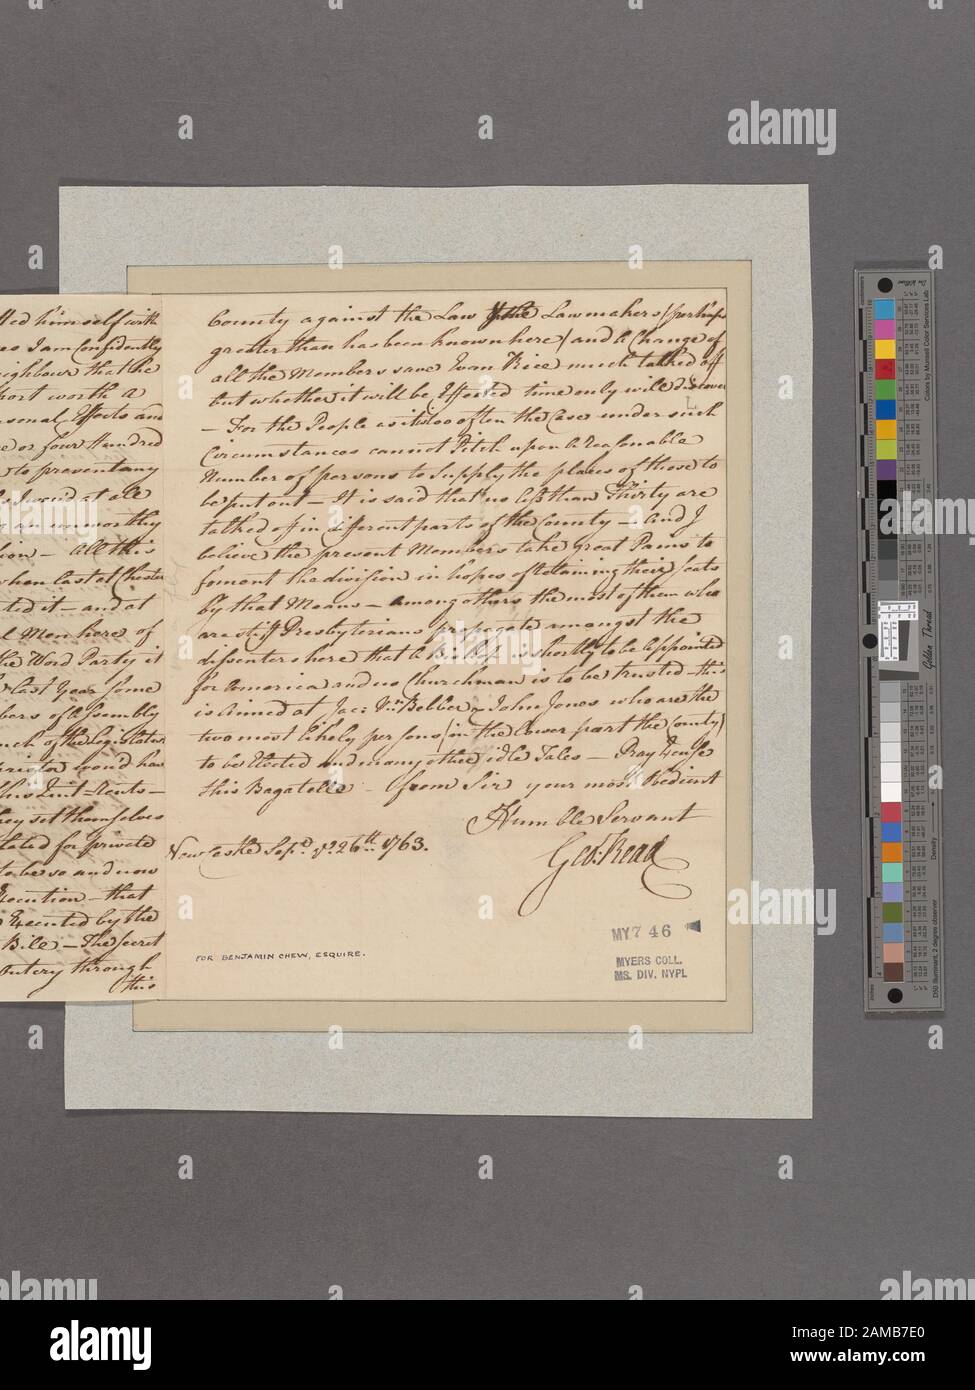 tted himself with
es I am Confidently
eighbour that he
hort worth a
sonal Effects and
e or four Hundred
to present any
Sword at all
an unworthy
tion — All this
when last at Chester
ted it — and at
l Men here of
the Word Party it
last Year some
bers of Assembly
nch of the Legislature
prietor wou'd have
his Quit-Rents —
they set themselves
lated for private
to be so and now
Execution — that
Executed by the
Bile — The Secret
Outcry through
this
County against the Law & the Lawmakers (perhaps
greater than has been known here) and a Change of
all the Members save Evan Rice much talked off
but whether it will be Effected time only will Discover
— For the People as it is too often the Case under such
Circumstances cannot Pitch upon a reasonable
Number of persons to Supply the places of those to
be put out — It is said that no less than Thirty are
talked off in different parts of the County — And I
believe the present Members take great Pains to
foment the division in hopes of retaining their seats
by that Means — amongst others the most of them who
are stiff Presbyterians propagate amongst the
dissenters here that a Bishop is shortly to be appointed
for America and no Churchman is to be trusted — this
is Aimed at Jac: Vn Bebber & John Jones who are the
two most likely persons (in the lower part the County)
to be Elected and many other idle Tales — Pray Excuse
this Bagatelle — from Sir your most Obedient
Humble Servant
New Castle Sepr. ye 26th 1763.
Geo: Read
FOR BENJAMIN CHEW, ESQUIRE.
MY 7 46
MYERS COLL.
MS. DIV. NYPL
Golden Thread
Colors by Munsell Color Services Lab
D50 Illuminant, 2 degree observer
Density
inches
a alamy
alamy
Image ID: 2AMB7E0
www.alamy.com